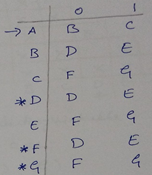 0 1
→A B C
B D E
C F G
*D D E
E F G
*F D E
*G F G